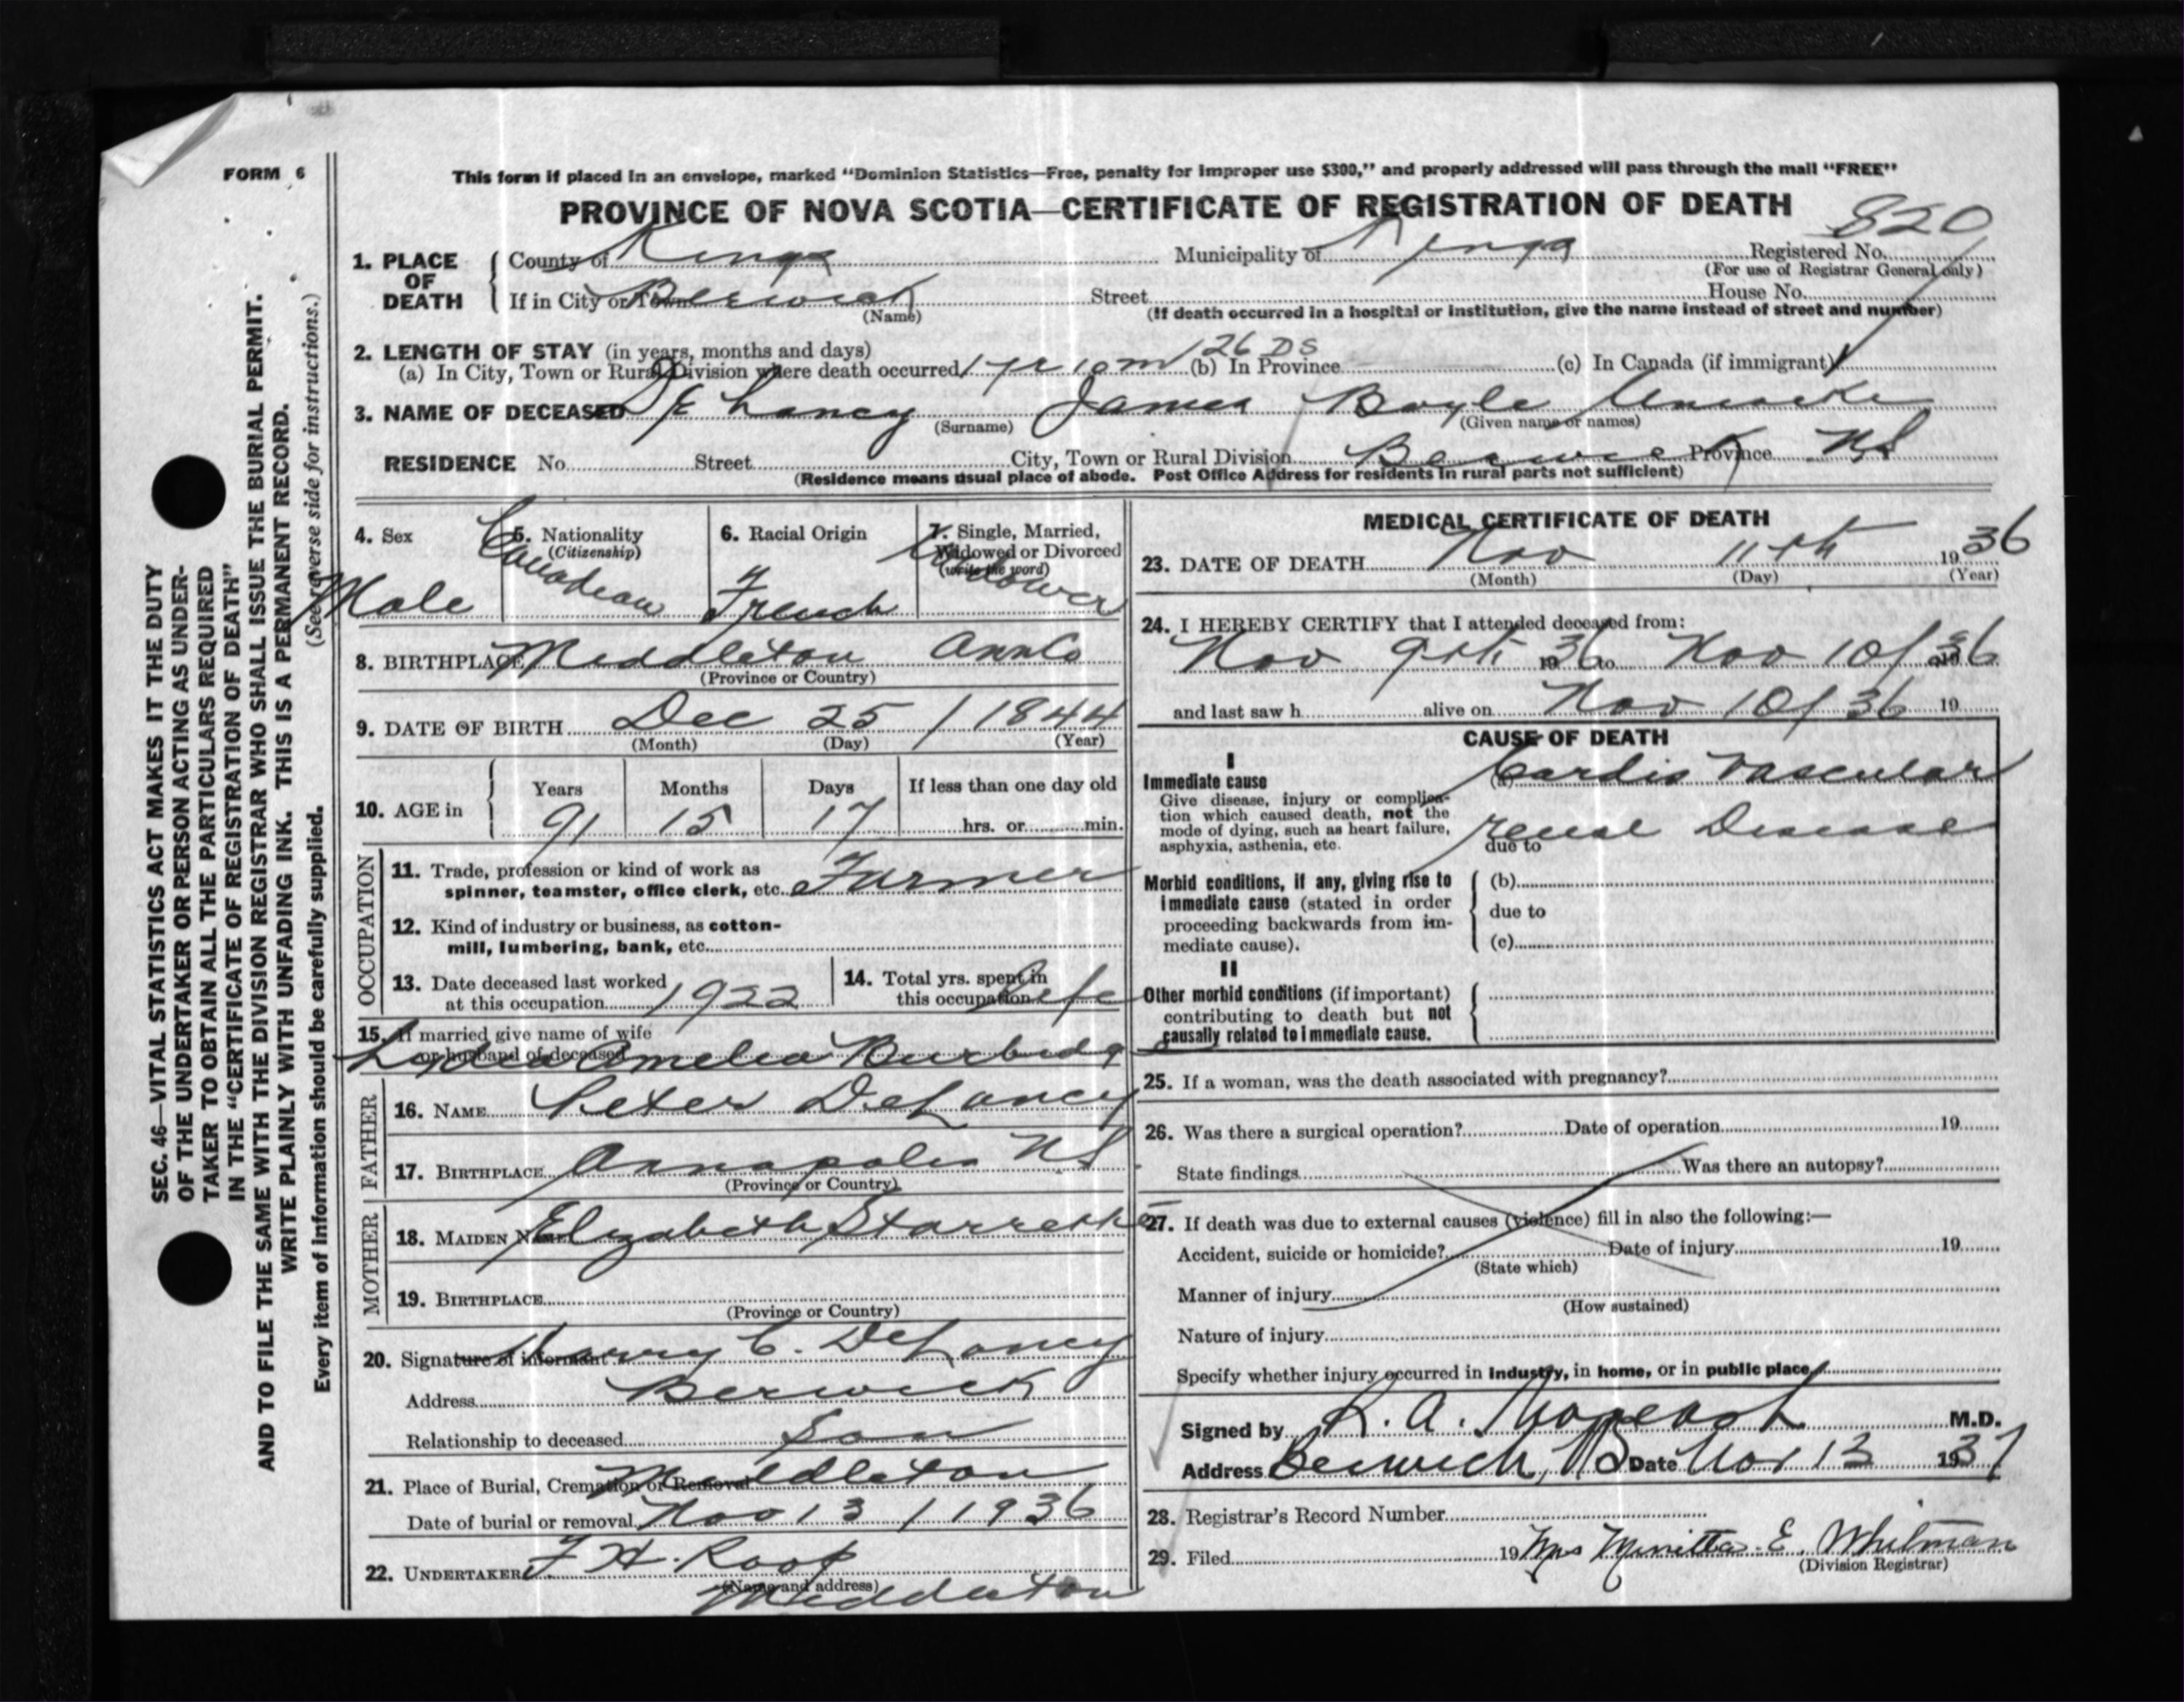 FORM 6
This form if placed in an envelope, marked "Dominion Statistics—Free, penalty for improper use $300," and properly addressed will pass through the mail "FREE"
PROVINCE OF NOVA SCOTIA—CERTIFICATE OF REGISTRATION OF DEATH
820
1. PLACE OF DEATH County of Kings Municipality of Kings Registered No.
(For use of Registrar General only)
If in City or Town Berwick Street House No.
(Name) (If death occurred in a hospital or institution, give the name instead of street and number)
2. LENGTH OF STAY (in years, months and days)
(a) In City, Town or Rural Division where death occurred 1 yr 10 m 26 Ds (b) In Province (c) In Canada (if immigrant)
3. NAME OF DECEASED DeLancy James Boyle
(Surname) (Given name or names)
RESIDENCE No. Street City, Town or Rural Division Berwick Province NS
(Residence means usual place of abode. Post Office Address for residents in rural parts not sufficient)
4. Sex Male
5. Nationality (Citizenship) Canadian
6. Racial Origin French
7. Single, Married, Widowed or Divorced (write the word) Widower
8. BIRTHPLACE Middleton Ann Co
(Province or Country)
9. DATE OF BIRTH Dec 25 / 1844
(Month) (Day) (Year)
10. AGE in Years Months Days If less than one day old
91 15 17 hrs. or min.
OCCUPATION
11. Trade, profession or kind of work as
spinner, teamster, office clerk, etc. Farmer
12. Kind of industry or business, as cotton-
mill, lumbering, bank, etc.
13. Date deceased last worked
at this occupation 1922
14. Total yrs. spent in
this occupation Life
15. If married give name of wife
or husband of deceased Lydia Amelia Burbidg
FATHER
16. NAME Peter DeLancey
17. BIRTHPLACE Annapolis NS
(Province or Country)
MOTHER
18. MAIDEN NAME Elizabeth
19. BIRTHPLACE
(Province or Country)
20. Signature of informant Harry C. DeLancey
Address Berwick
Relationship to deceased Son
21. Place of Burial, Cremation or Removal Middleton
Date of burial or removal Nov 13 / 1936
22. UNDERTAKER F H. Roop
(Name and address)
Middleton
MEDICAL CERTIFICATE OF DEATH
23. DATE OF DEATH Nov 11th 1936
(Month) (Day) (Year)
24. I HEREBY CERTIFY that I attended deceased from:
Nov 9th 1936 to Nov 10/36
and last saw h alive on Nov 10/36 19
CAUSE OF DEATH
I
Immediate cause (a) Cardio Vascular
Give disease, injury or complica-
tion which caused death, not the
mode of dying, such as heart failure,
asphyxia, asthenia, etc.
renal Disease
due to
Morbid conditions, if any, giving rise to
immediate cause (stated in order
proceeding backwards from im-
mediate cause).
(b)
due to
(c)
II
Other morbid conditions (if important)
contributing to death but not
causally related to immediate cause.
25. If a woman, was the death associated with pregnancy?
26. Was there a surgical operation? Date of operation 19
State findings Was there an autopsy?
27. If death was due to external causes (violence) fill in also the following:—
Accident, suicide or homicide? Date of injury 19
(State which)
Manner of injury
(How sustained)
Nature of injury
Specify whether injury occurred in industry, in home, or in public place
Signed by R. A. M.D.
Address Berwick, NS Date Nov 13 1937
28. Registrar's Record Number
29. Filed 19 Mrs Minetta E. Whitman
(Division Registrar)
SEC. 46—VITAL STATISTICS ACT MAKES IT THE DUTY
OF THE UNDERTAKER OR PERSON ACTING AS UNDER-
TAKER TO OBTAIN ALL THE PARTICULARS REQUIRED
IN THE "CERTIFICATE OF REGISTRATION OF DEATH"
AND TO FILE THE SAME WITH THE DIVISION REGISTRAR WHO SHALL ISSUE THE BURIAL PERMIT.
WRITE PLAINLY WITH UNFADING INK. THIS IS A PERMANENT RECORD.
(See reverse side for instructions.)
Every item of information should be carefully supplied.